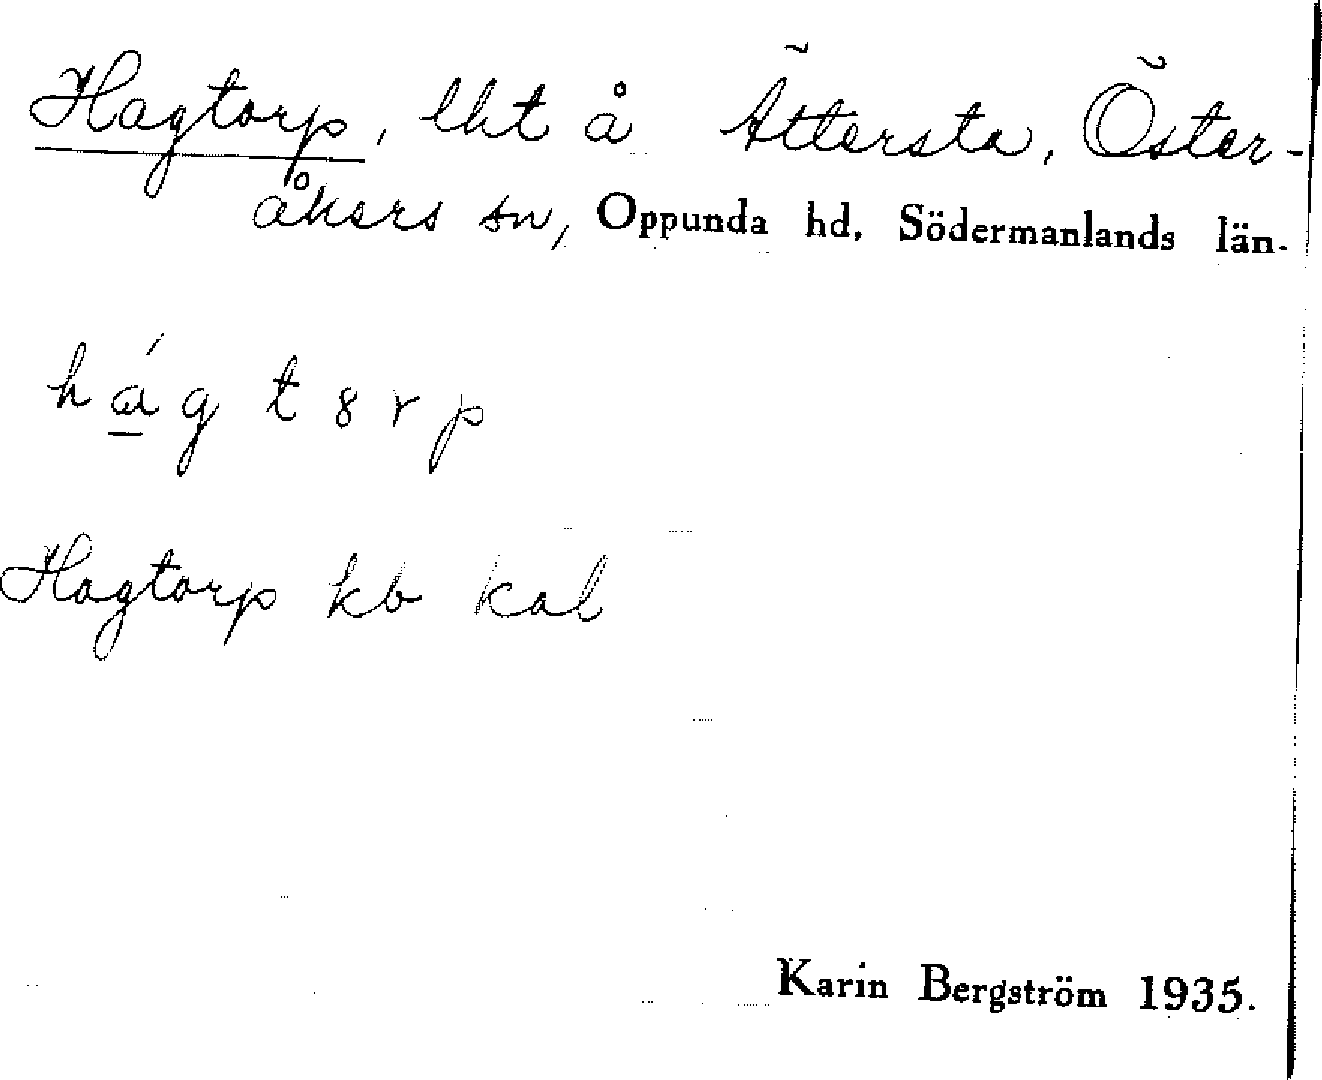 Hagtorp, lht å Ättersta, Öster-
åkers sn, Oppunda hd, Södermanlands län.
hág t 8 r p
Hagtorp kb kal
Karin Bergström 1935.